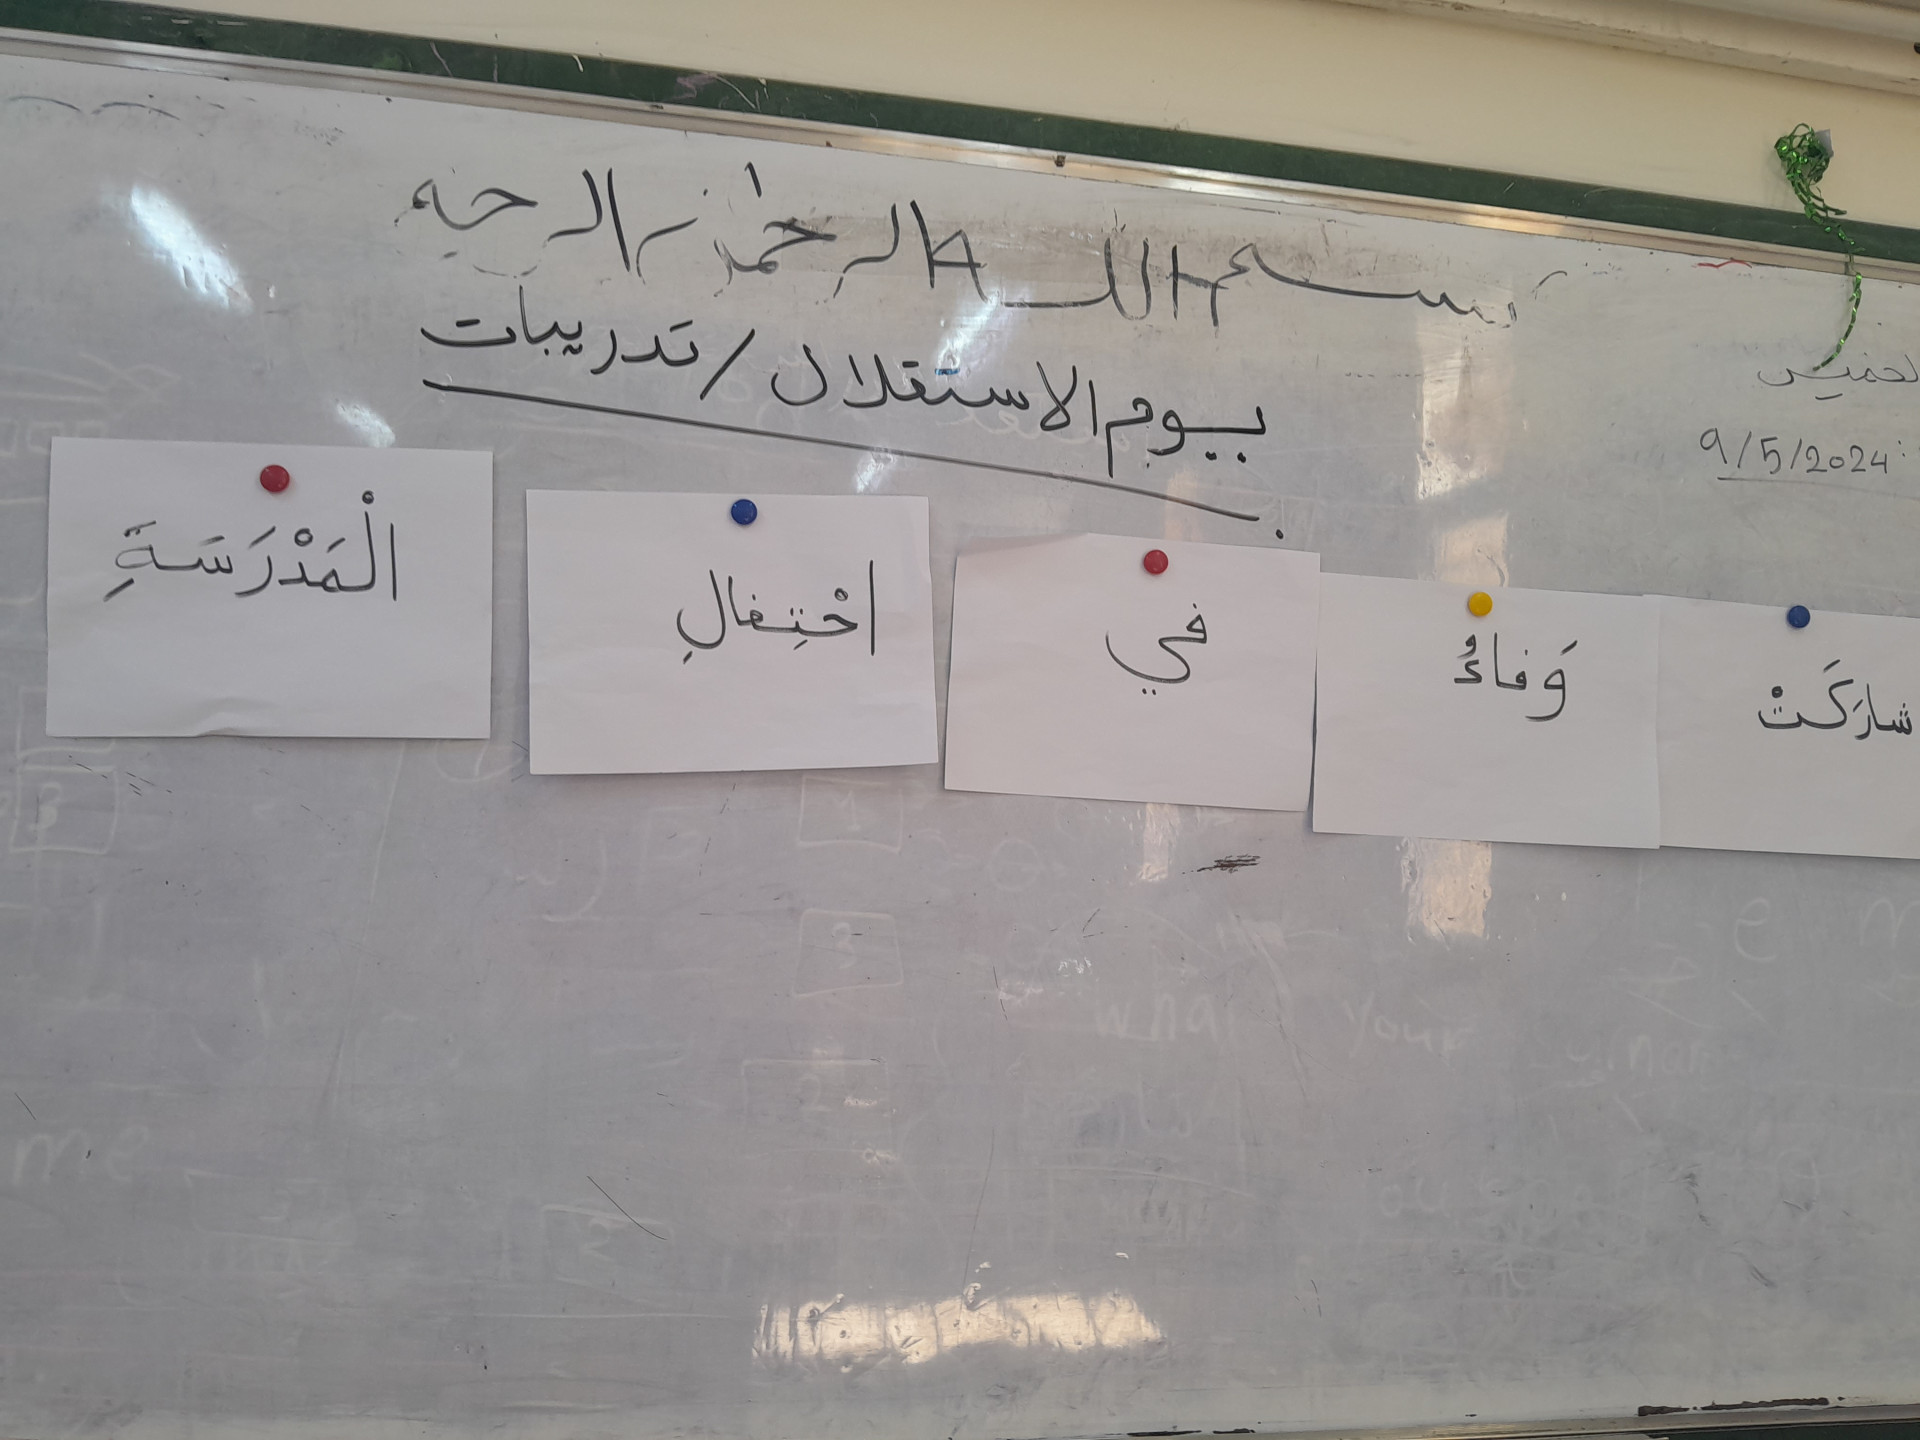 بسم الله الرحمٰن الرحيم
الخميس
9/5/2024
يوم الاستقلال / تدريبات
شارَكَتْ وَفاءُ في احْتِفالِ الْمَدْرَسَةِ